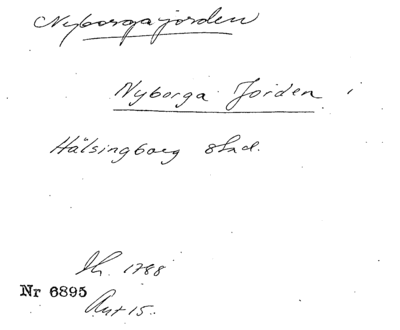 Nyborgajorden
Nyborga Jorden i
Hälsingborg stad.
Jh. 1788
Nr 6895
Akt 15.